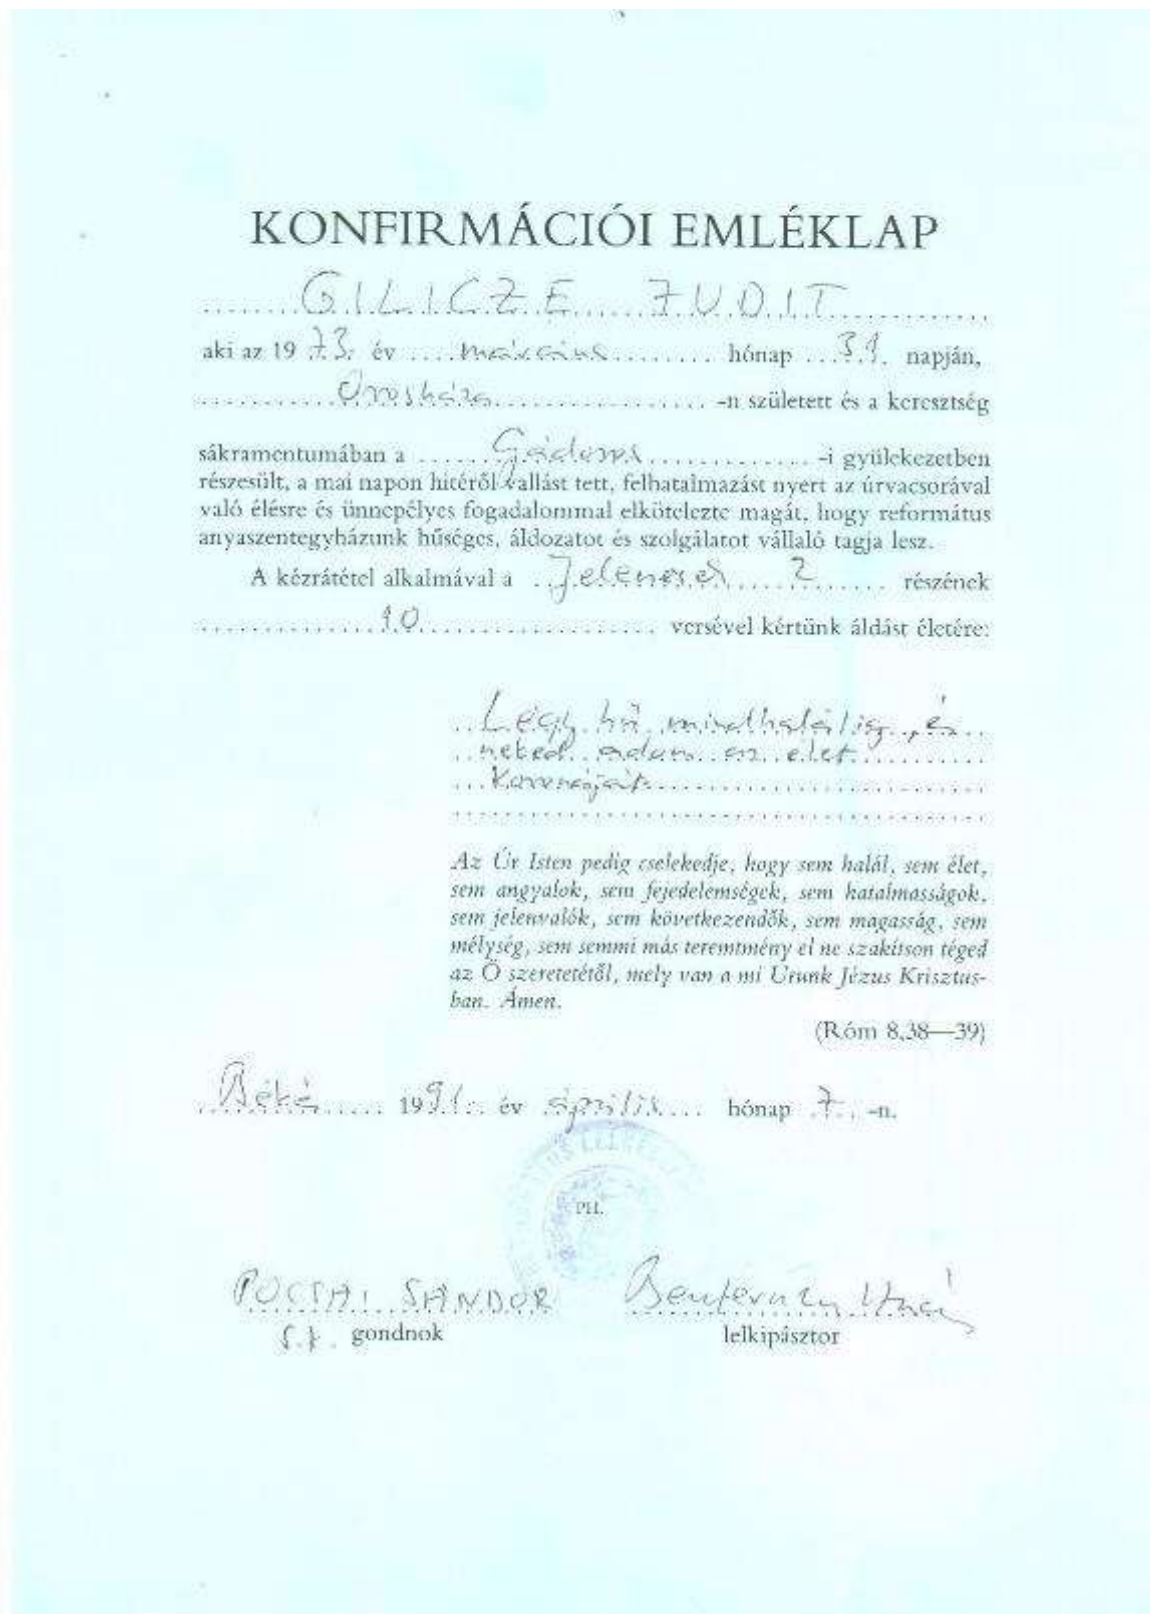 KONFIRMÁCIÓI EMLÉKLAP
GILICZE JUDIT
aki az 1973. év március hónap 31. napján,
Orosháza -n született és a keresztség
sákramentumában a Gádoros -i gyülekezetben
részesült, a mai napon hitéről vallást tett, felhatalmazást nyert az úrvacsorával
való élésre és ünnepélyes fogadalommal elkötelezte magát, hogy református
anyaszentegyházunk hűséges, áldozatot és szolgálatot vállaló tagja lesz.
A kézrátétel alkalmával a Jelenések 2 részének
10 versével kértünk áldást életére:
Légy hű mindhalálig, és
neked adom az élet
koronáját
Az Úr Isten pedig cselekedje, hogy sem halál, sem élet,
sem angyalok, sem fejedelemségek, sem hatalmasságok,
sem jelenvalók, sem következendők, sem magasság, sem
mélység, sem semmi más teremtmény el ne szakítson téged
az Ő szeretetétől, mely van a mi Urunk Jézus Krisztus-
ban. Ámen.
(Róm 8,38—39)
1991. év április hónap 7. -n.
PH.
POCSAI SÁNDOR
s.k. gondnok
lelkipásztor